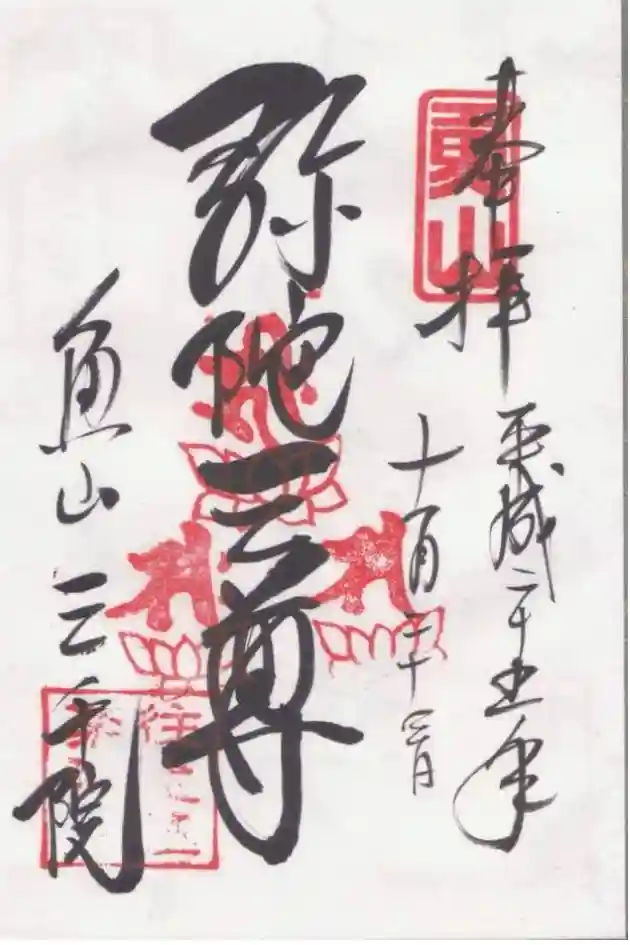 奉拝
平成二十五年
十月二十三日
弥陀三尊
魚山
三千院